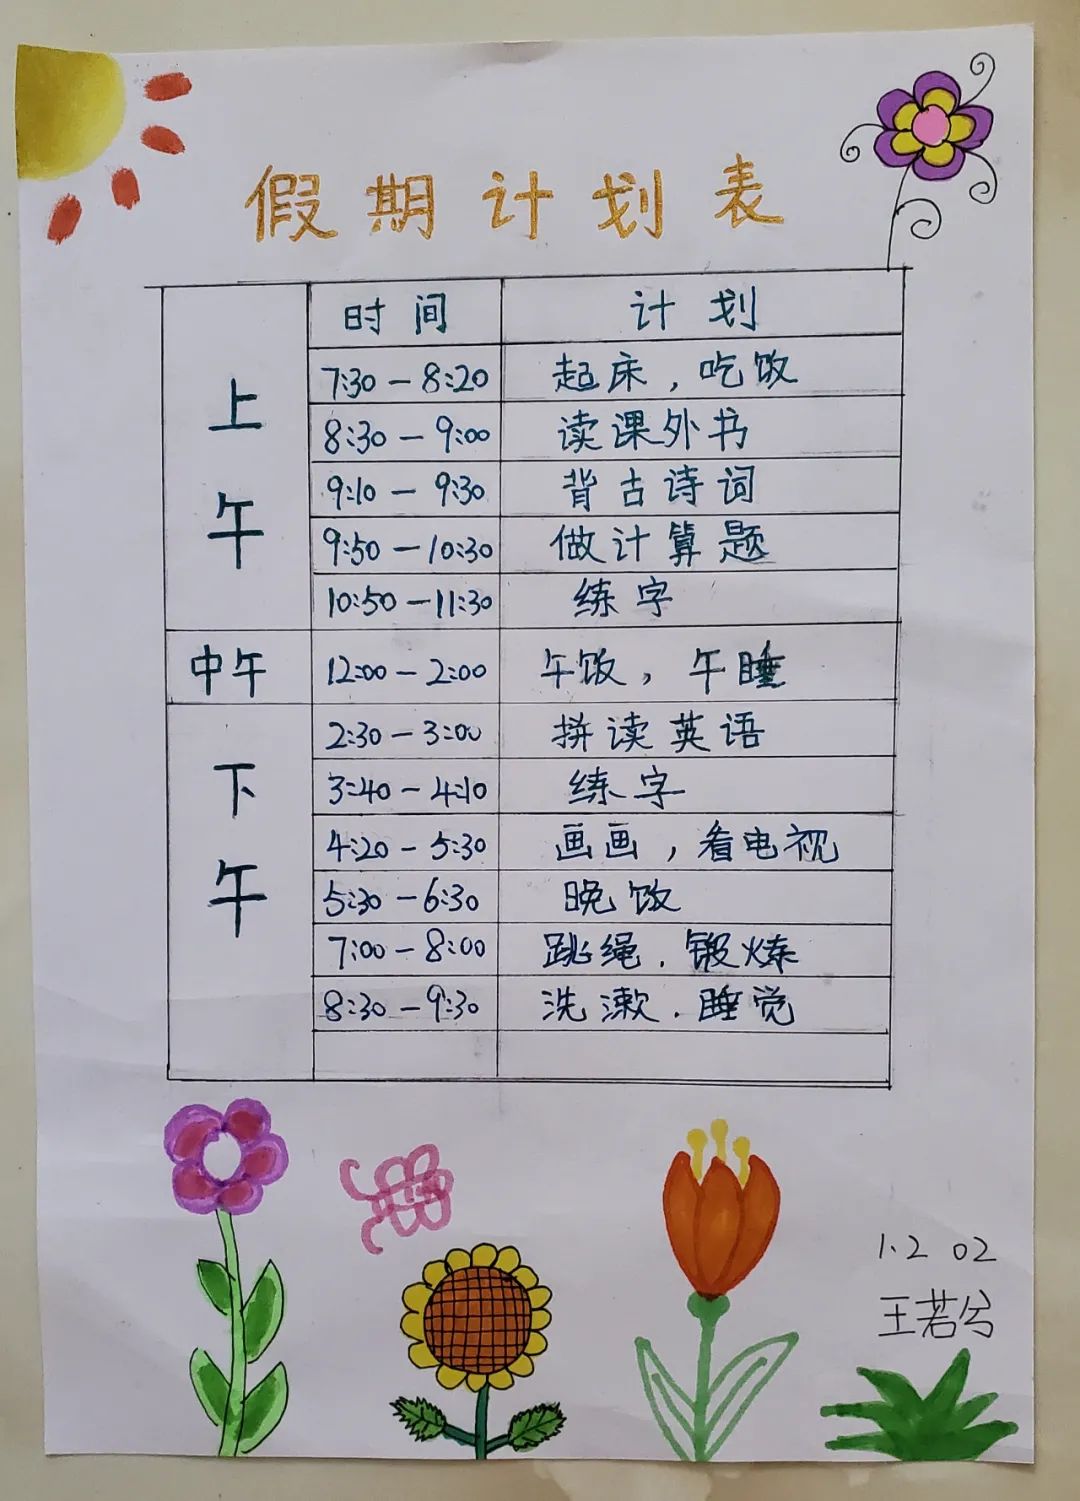 假期计划表
时间 计划
上午
7:30－8:20 起床，吃饭
8:30－9:00 读课外书
9:10－9:30 背古诗词
9:50－10:30 做计算题
10:50－11:30 练字
中午 12:00－2:00 午饭，午睡
下午
2:30－3:00 拼读英语
3:40－4:10 练字
4:20－5:30 画画，看电视
5:30－6:30 晚饭
7:00－8:00 跳绳.锻炼
8:30－9:30 洗漱.睡觉
1.2 02
王若兮